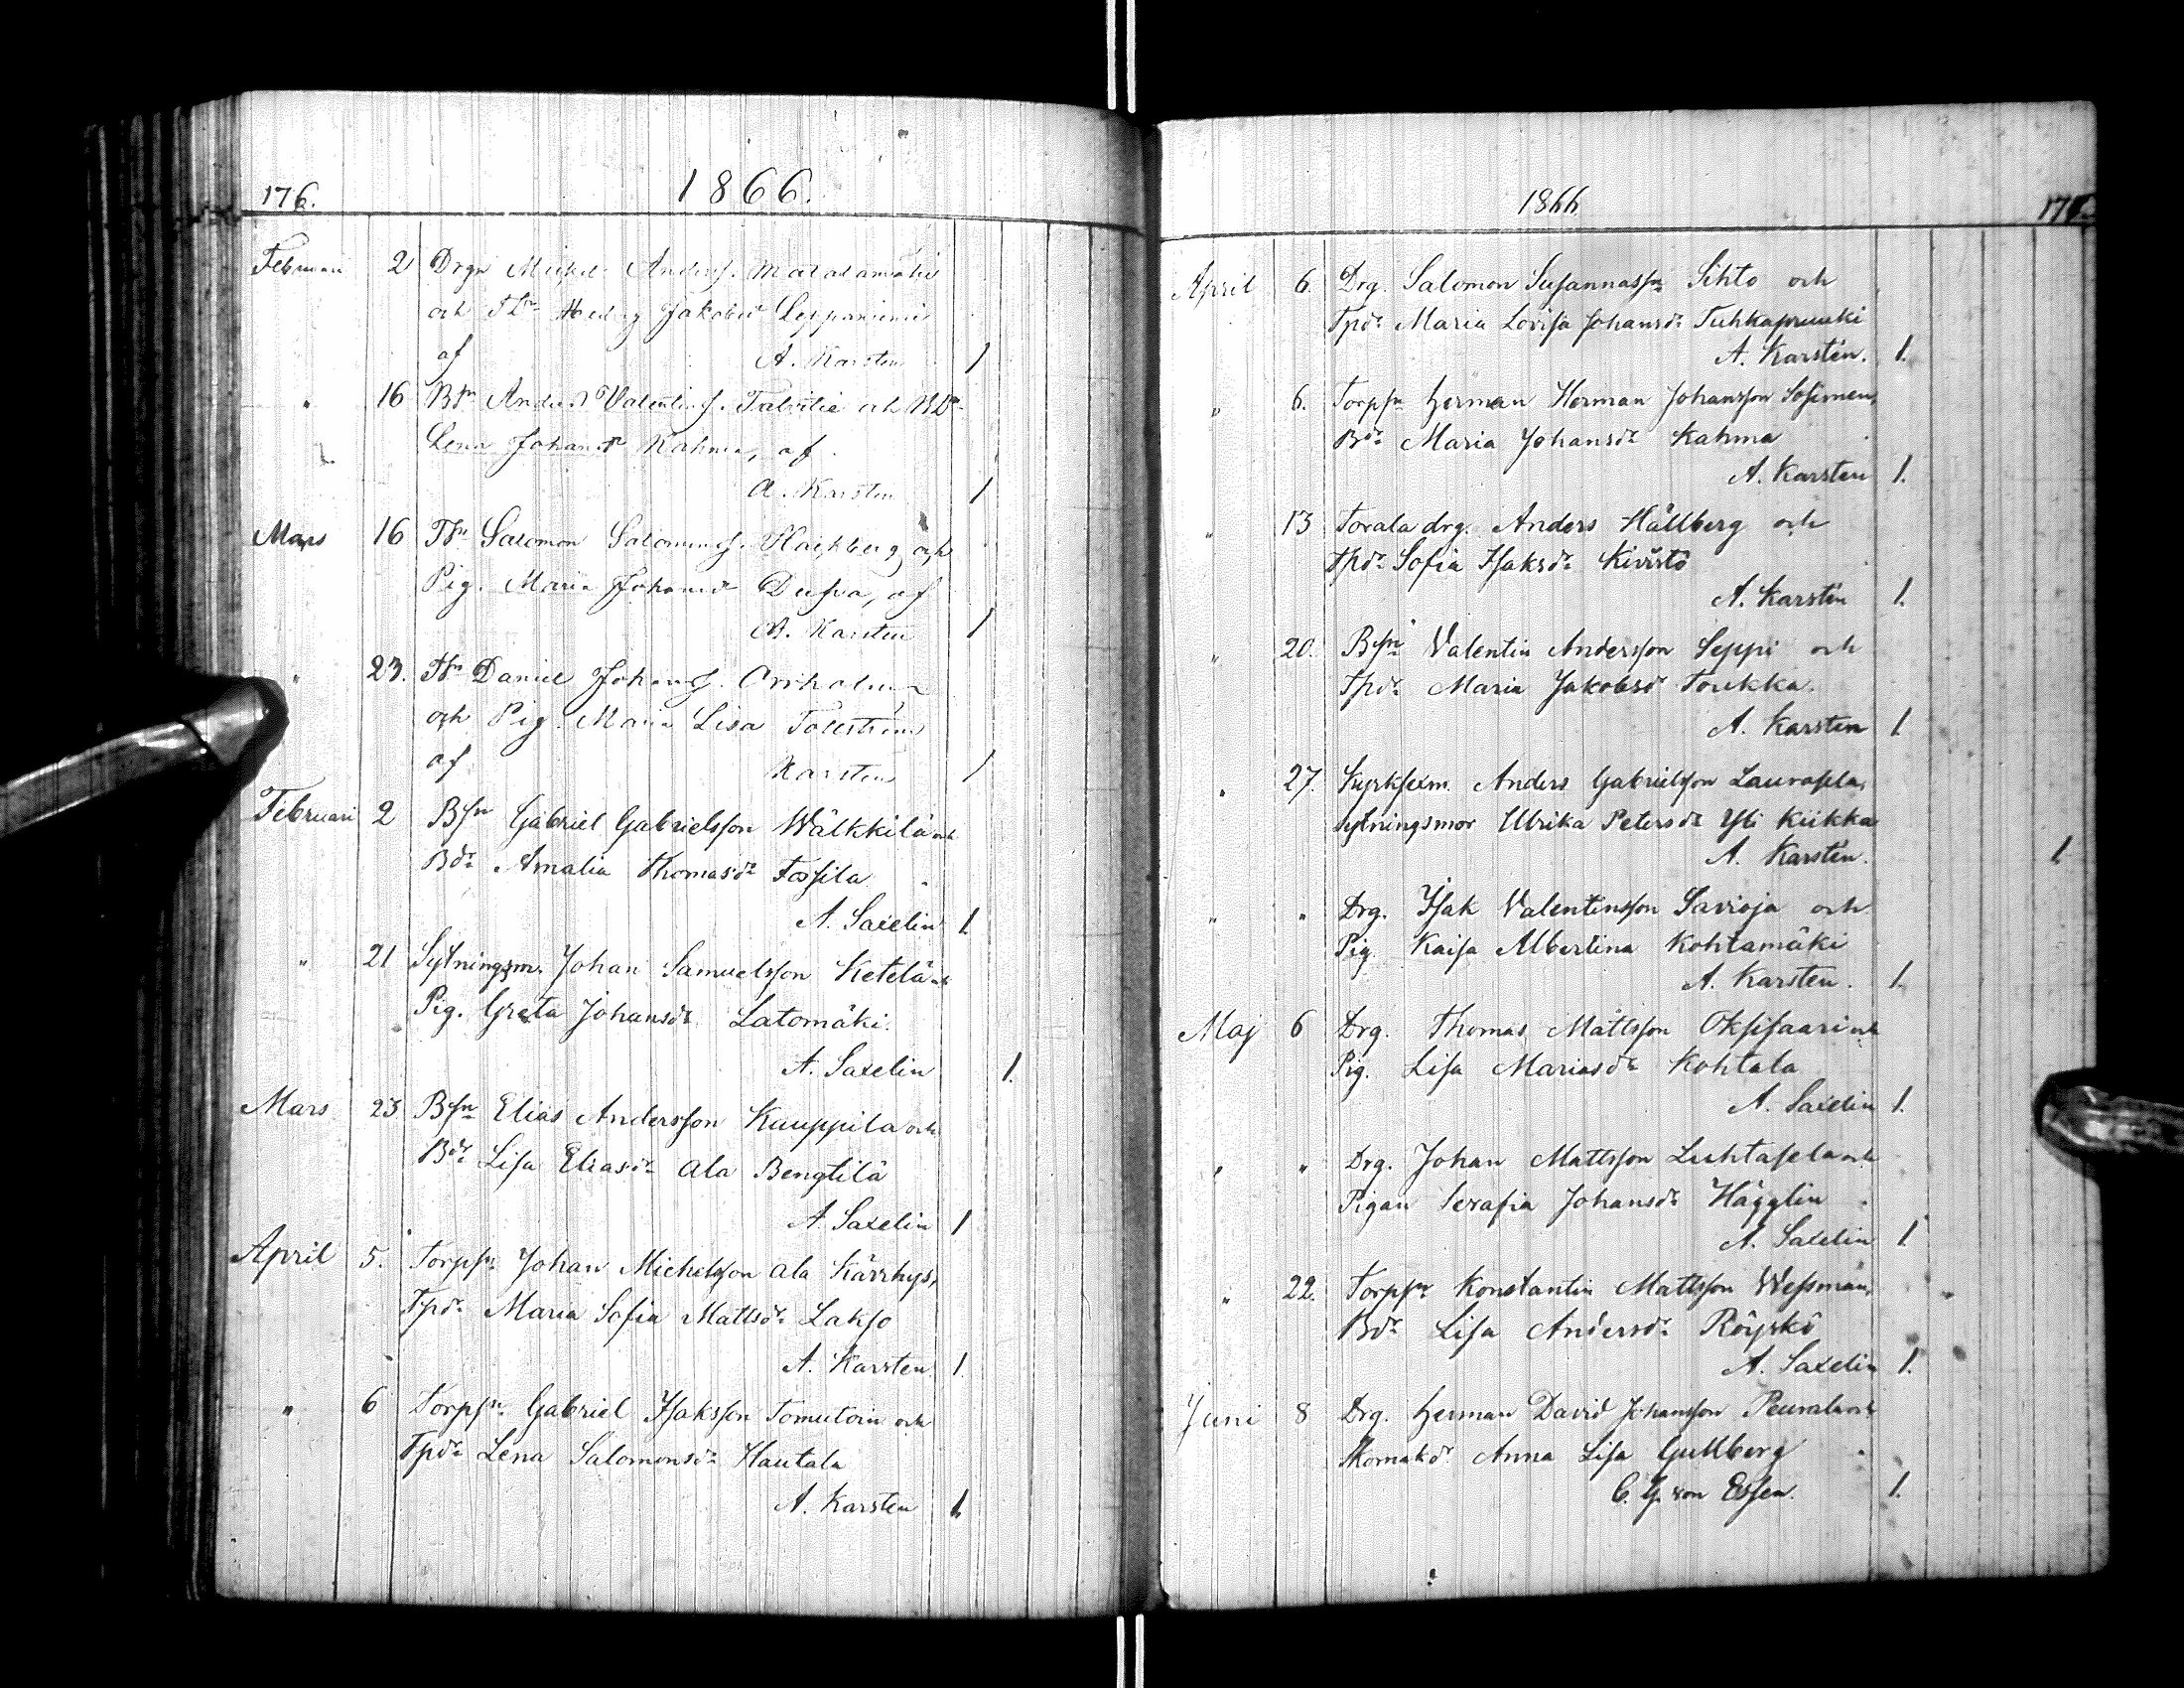 176.
1866.
Februari 2 Drgn Michel Andersf. Matalamäki
och Tdr Hedvig Jakobsdr Leppäniemi
af A. Karsten 1
" 16 Bfn Anders Valentinsf. Talvitie och Bdr
Lena Johansdr Kahma, af
A. Karsten 1
Mars 16 Tfn Salomon Salomonsf. och
Pig. Maria Johansdr Dufva, af
A. Karsten 1
" 23. Tfn Daniel Johansf. Orrholm
och Pig. Maria Lisa
af Karsten 1
Februari 2 Bfn Gabriel Gabrielsson Wälkkilä och
Bdr Amalia Thomasdr Fossila
A. Saxelin 1.
" 21 Sytningsm. Johan Samuelsson Ketelä och
Pig. Greta Johansdr Latomäki.
A. Saxelin 1.
Mars 23 Bfn Elias Andersson Kauppila och
Bdr Lisa Eliasdr Ala Bengtilä
A. Saxelin 1
April 5. Torpfn Johan Michelsson Ala Kärrhys,
Tpdr Maria Sofia Mattsdr Lakso
A. Karsten 1.
" 6 Torpfn Gabriel Isaksson Tomutoin och
Tpdr Lena Salomonsdr Hautala
A. Karsten 1.
1866
177.
April 6. Drg. Salomon Susannasson Sihto och
Tpdr Maria Lovisa Johansdr Tuhkapruuki
A. Karstén. 1.
" 6. Torpfn Herman Herman Johansson Sosimen,
Bdr Maria Johansdr Kahma
A. Karsten 1.
" 13 Torala drg. Anders Hällberg och
Tpdr Sofia Isaksdr Kivistö
A. Karstén 1.
" 20. Bfn Valentin Andersson Seppi och
Tpdr Maria Jakobsdr Toukka.
A. Karsten 1
" 27. Kyrksexm. Anders Gabrielsson Laurosela,
Sytningsmor Ulrika Petersdr Yli Kiikka
A. Karstén. 1.
" " Drg. Isak Valentinsson Savioja och
Pig. Kaisa Albertina Kohtamäki
A. Karsten. 1.
Maj 6 Drg. Thomas Mattsson Oksisaari och
Pig. Lisa Mariasdr Kohtala
A. Saxelin 1.
" " Drg. Johan Mattsson Luhtasela och
Pigan Serafia Johansdr Hägglin
A. Saxelin 1.
" 22. Torpfn Konstantin Mattsson Wessman,
Bdr Lisa Andersdr Röyskö
A. Saxelin 1.
Juni 8 Drg. Herman David Johansson Peurala och
Skomakdr Anna Lisa Gullberg
C. G. von Essen. 1.